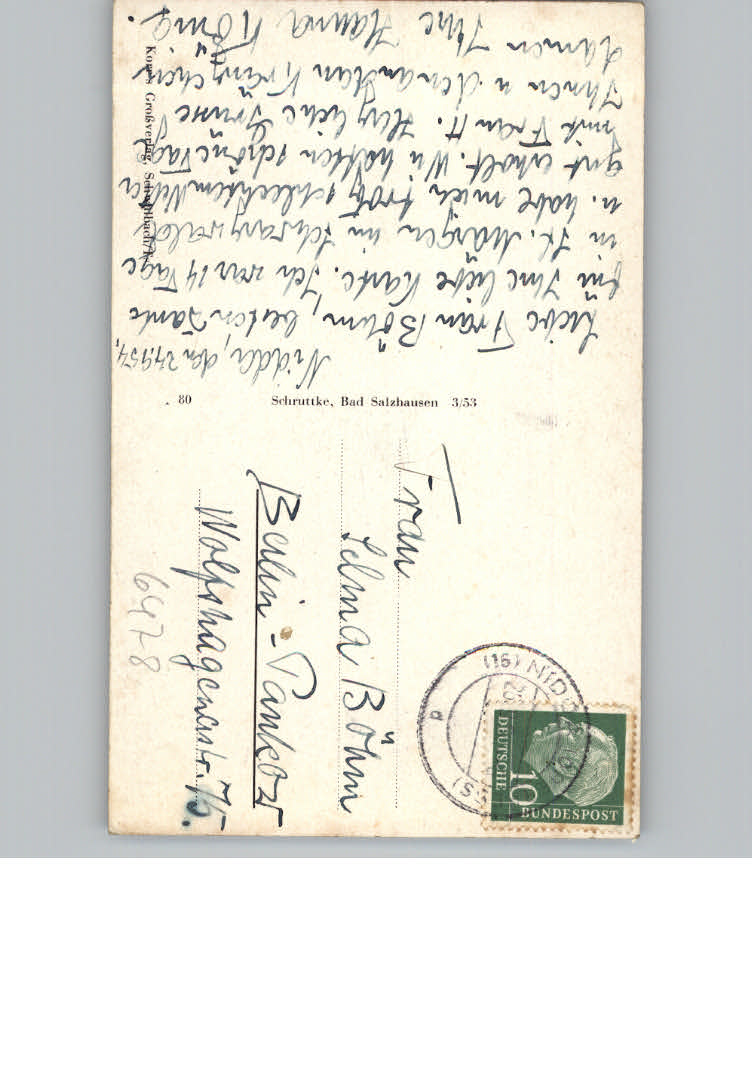 Nidda, den 24.9.54,
Liebe Frau Böhm, besten Dank
für Ihre liebe Karte. Ich war 14 Tage
in St. Märgen im Schwarzwald
u. habe mich trotz schlechtem Wetter
gut erholt. Wir hatten schöne Tage
mit Frau H. Herzliche Grüsse
Ihnen u. den andern Kränzchen
damen Ihre Hanna König.
Großverlag,
80
Schruttke, Bad Salzhausen 3/53
Frau
Selma Böhm
Berlin-Pankow
Wolfshagenerstr. 75.
6478
(16) NIDDA
DEUTSCHE
10
BUNDESPOST